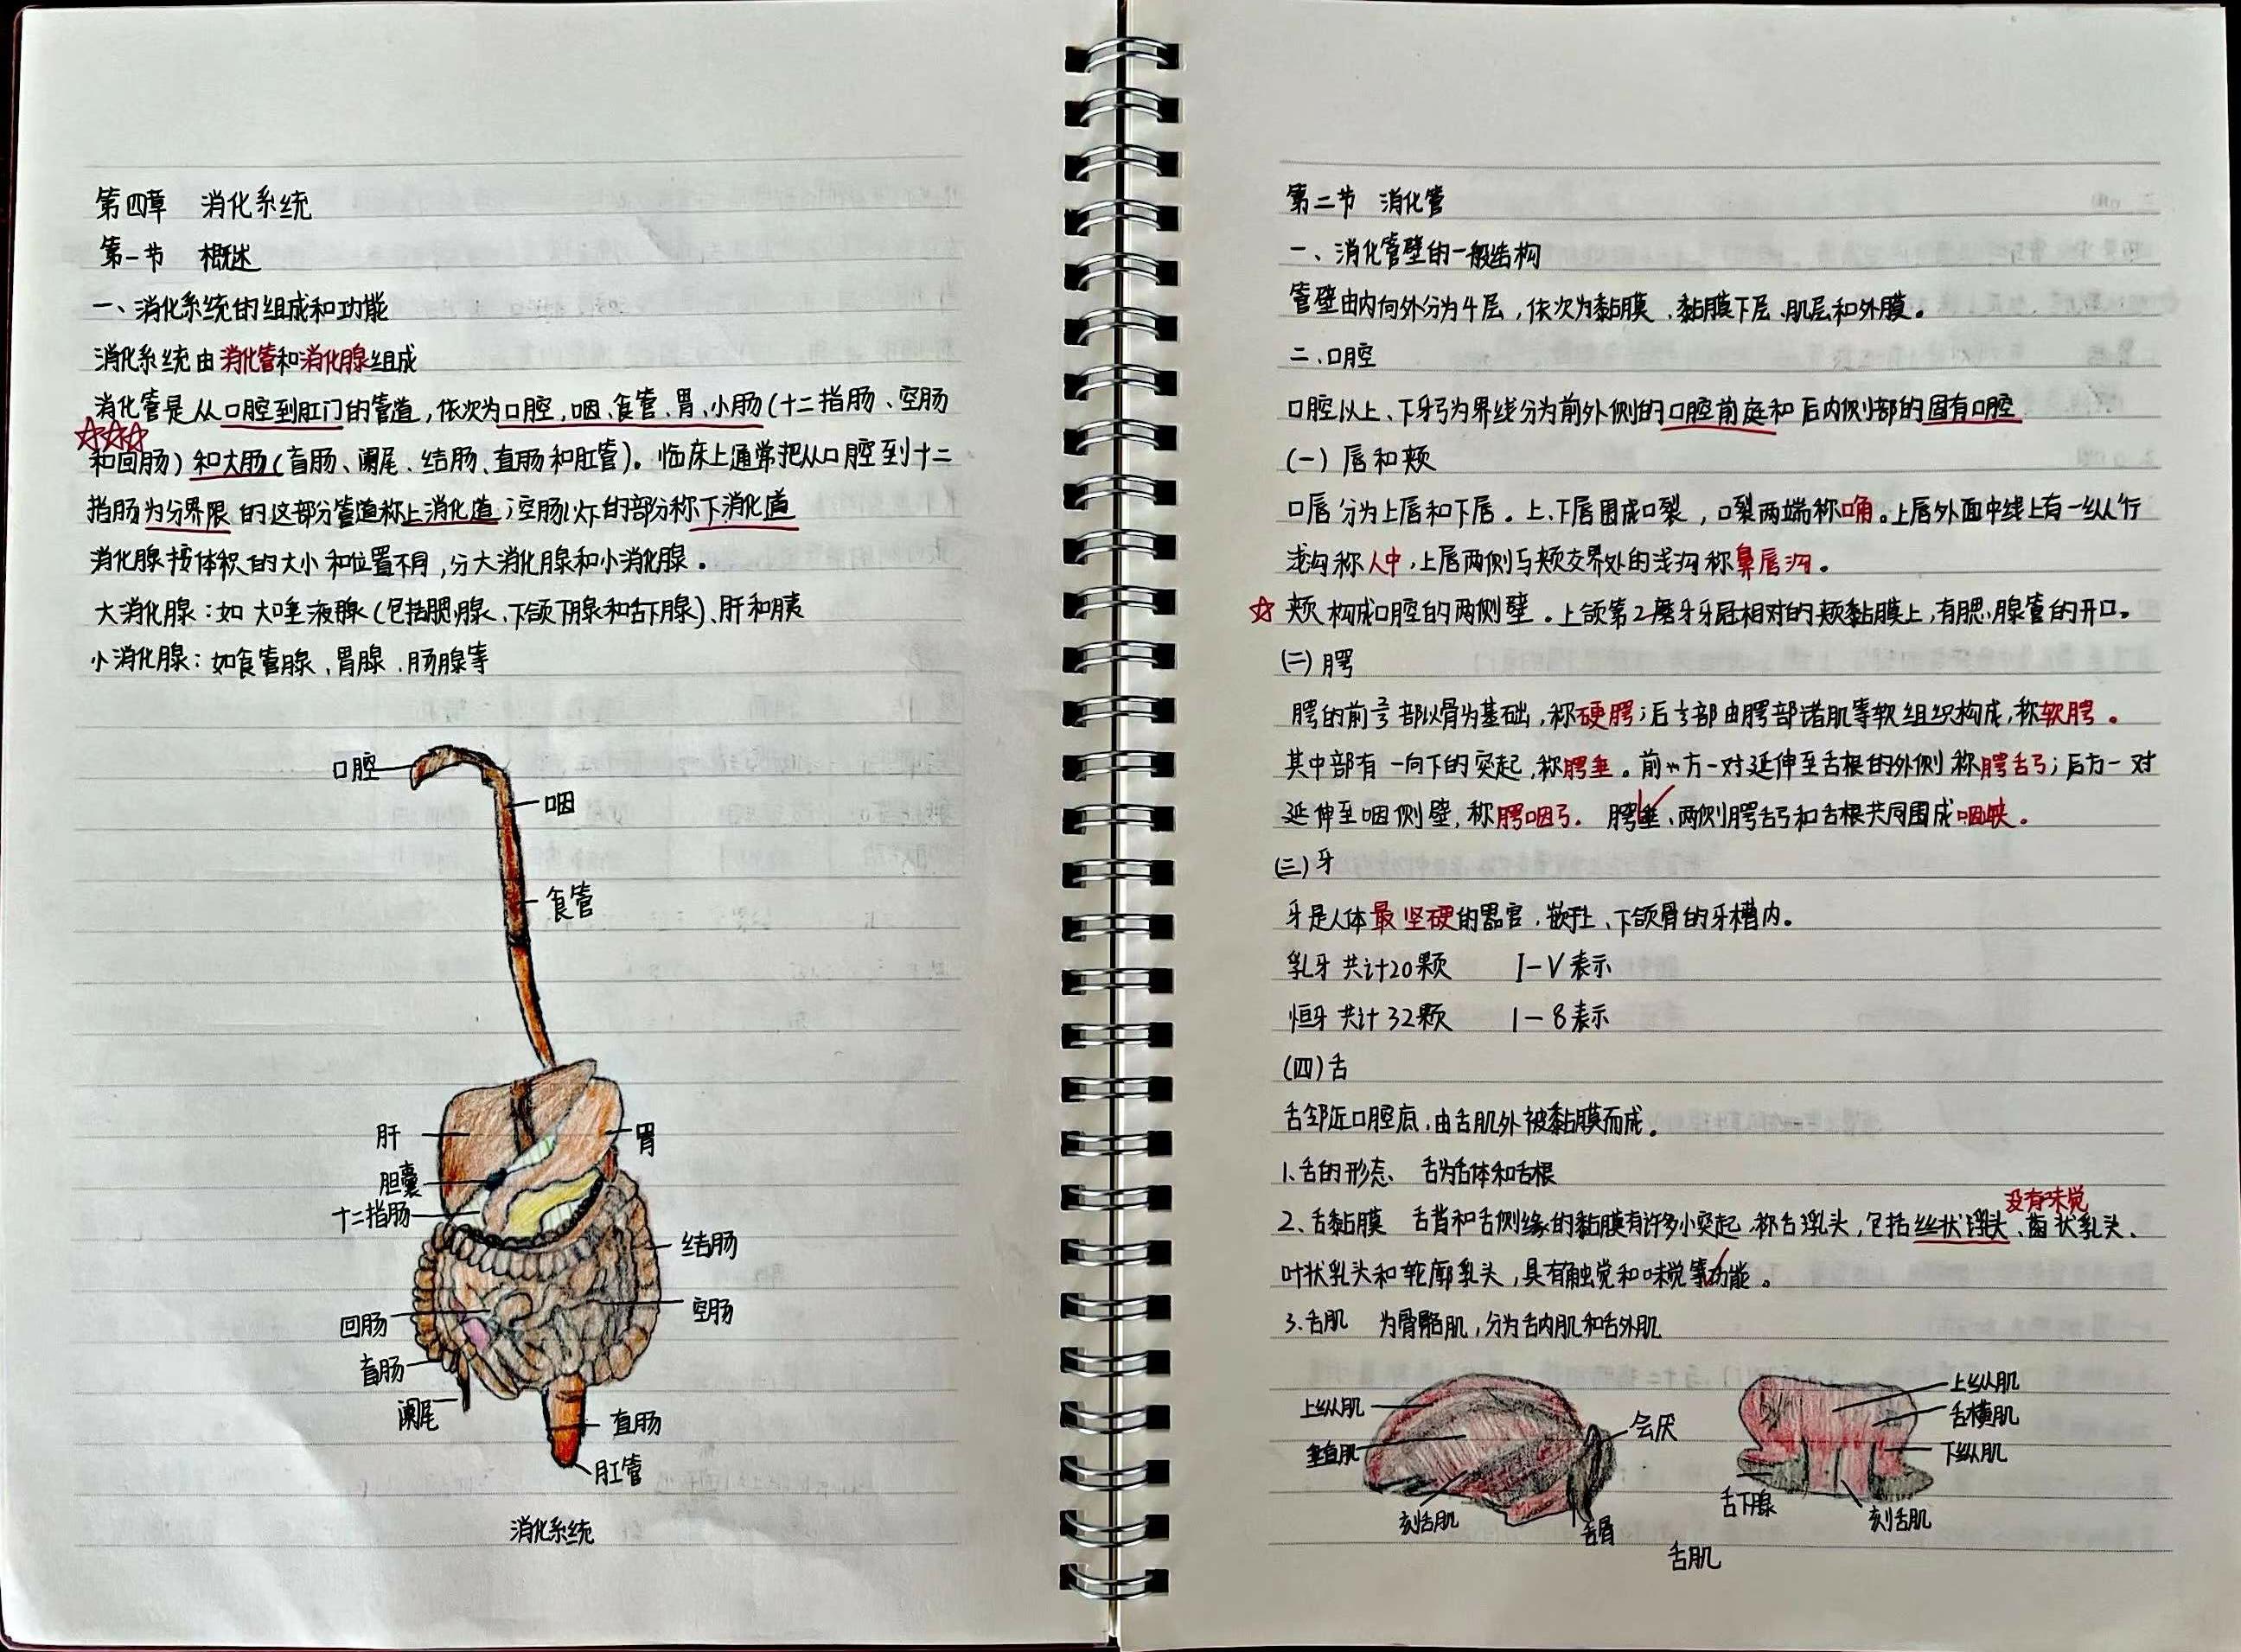 第四章 消化系统
第一节 概述
一、消化系统的组成和功能
消化系统由消化管和消化腺组成
消化管是从口腔到肛门的管道,依次为口腔,咽、食管、胃、小肠(十二指肠、空肠
和回肠)和大肠(盲肠、阑尾、结肠、直肠和肛管)。临床上通常把从口腔到十二
指肠为分界限的这部分管道称上消化道;空肠以下的部分称下消化道
消化腺按体积的大小和位置不同,分大消化腺和小消化腺。
大消化腺:如大唾液腺(包括腮腺、下颌下腺和舌下腺)、肝和胰
小消化腺:如食管腺、胃腺、肠腺等
口腔
咽
食管
肝
胃
胆囊
十二指肠
结肠
回肠
空肠
盲肠
阑尾
直肠
肛管
消化系统
第二节 消化管
一、消化管壁的一般结构
管壁由内向外分为4层,依次为黏膜、黏膜下层、肌层和外膜。
二、口腔
口腔以上、下牙弓为界线分为前外侧的口腔前庭和后内侧部的固有口腔
(一)唇和颊
口唇分为上唇和下唇。上、下唇围成口裂,口裂两端称口角。上唇外面中线上有一纵行
浅沟称人中,上唇两侧与颊交界处的浅沟称鼻唇沟。
颊构成口腔的两侧壁。上颌第2磨牙牙冠相对的颊黏膜上,有腮腺管的开口。
(二)腭
腭的前⅔部以骨为基础,称硬腭;后⅓部由腭部诸肌等软组织构成,称软腭。
其中部有一向下的突起,称腭垂。前方一对延伸至舌根的外侧称腭舌弓;后方一对
延伸至咽侧壁,称腭咽弓. 腭垂、两侧腭舌弓和舌根共同围成咽峡。
(三)牙
牙是人体最坚硬的器官,嵌于上、下颌骨的牙槽内。
乳牙共计20颗 I-V表示
恒牙共计32颗 1-8表示
(四)舌
舌邻近口腔底,由舌肌外被黏膜而成。
1.舌的形态 舌为舌体和舌根
没有味觉
2.舌黏膜 舌背和舌侧缘的黏膜有许多小突起,称舌乳头,包括丝状乳头、菌状乳头、
叶状乳头和轮廓乳头,具有触觉和味觉等功能。
3.舌肌 为骨骼肌,分为舌内肌和舌外肌
上纵肌
垂直肌
会厌
刻舌肌
舌骨
上纵肌
舌横肌
下纵肌
舌下腺
刻舌肌
舌肌